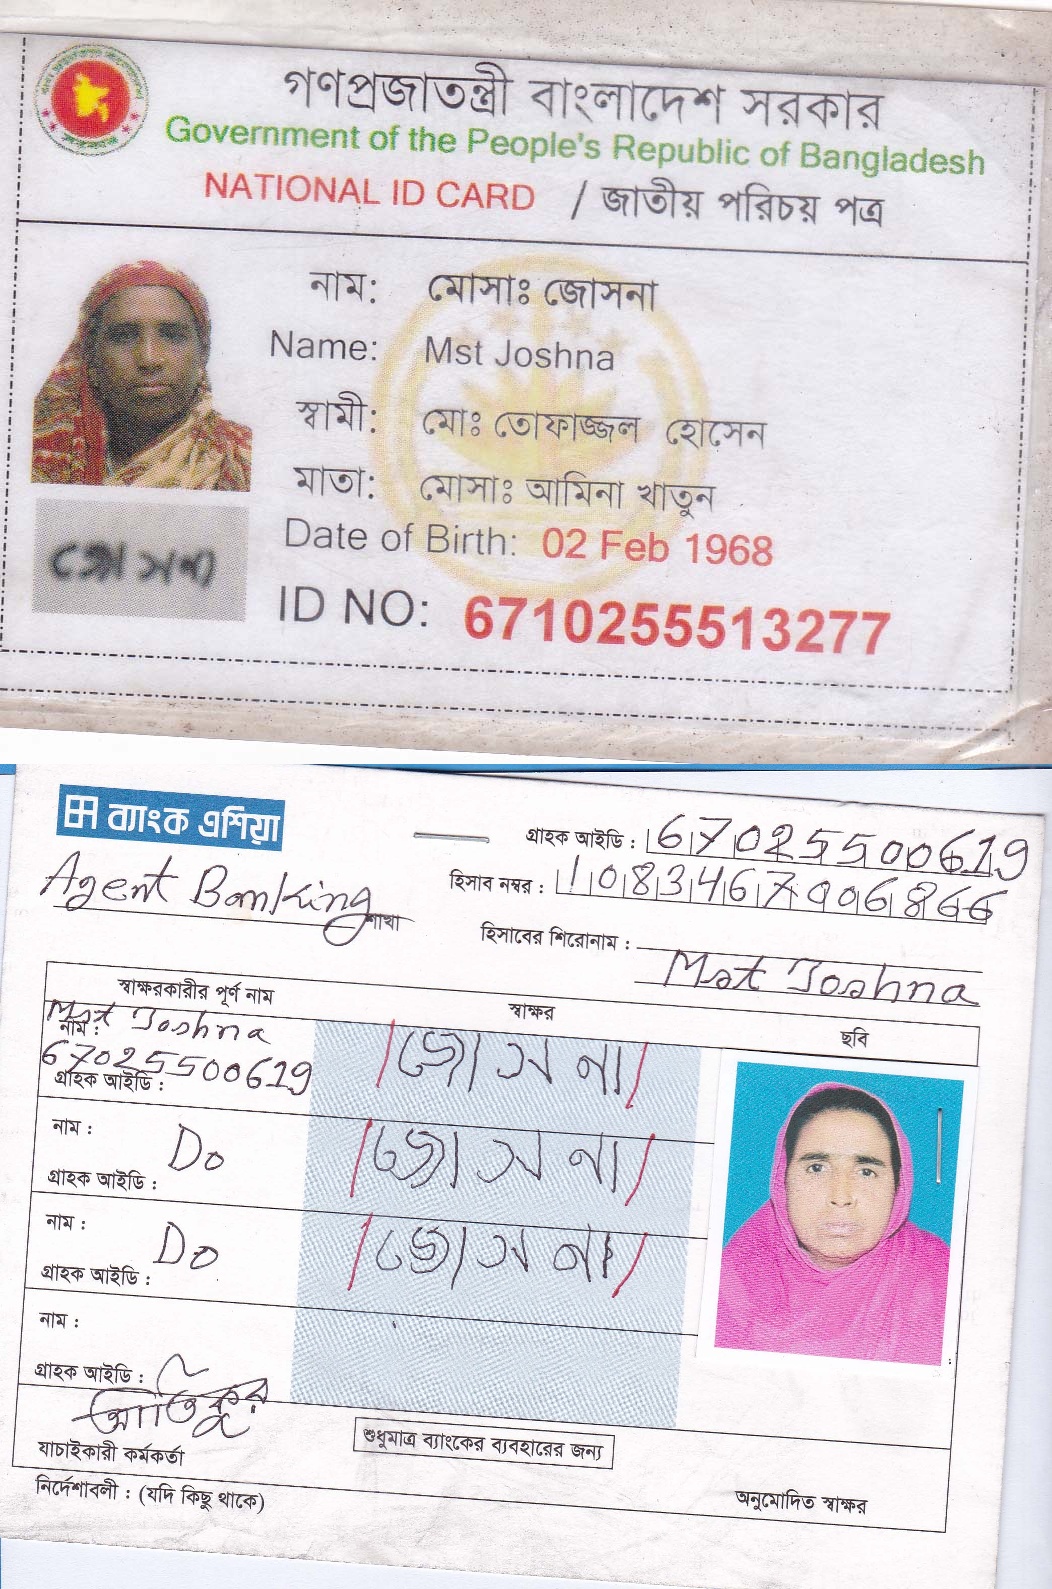 গণপ্রজাতন্ত্রী বাংলাদেশ সরকার
Government of the People's Republic of Bangladesh
NATIONAL ID CARD / জাতীয় পরিচয় পত্র
নাম: মোসাঃ জোসনা
Name: Mst Joshna
স্বামী: মোঃ তোফাজ্জল হোসেন
মাতা: মোসাঃ আমিনা খাতুন
Date of Birth: 02 Feb 1968
জোসনা
ID NO: 6710255513277
ব্যাংক এশিয়া
গ্রাহক আইডি : 67025500619
Agent Banking শাখা
হিসাব নম্বর : 1083467006866
হিসাবের শিরোনাম : Mst Joshna
স্বাক্ষরকারীর পূর্ণ নাম স্বাক্ষর ছবি
নাম : Mst Joshna জোসনা
গ্রাহক আইডি : 67025500619
নাম : Do জোসনা
গ্রাহক আইডি :
নাম : Do জোসনা
গ্রাহক আইডি :
নাম :
গ্রাহক আইডি :
যাচাইকারী কর্মকর্তা
শুধুমাত্র ব্যাংকের ব্যবহারের জন্য
নির্দেশাবলী : (যদি কিছু থাকে)
অনুমোদিত স্বাক্ষর